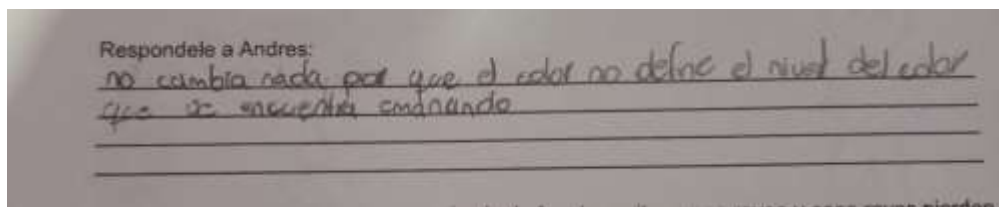 Respondele a Andres:
no cambia nada por que el color no define el nivel del color
que se encuentra emanando